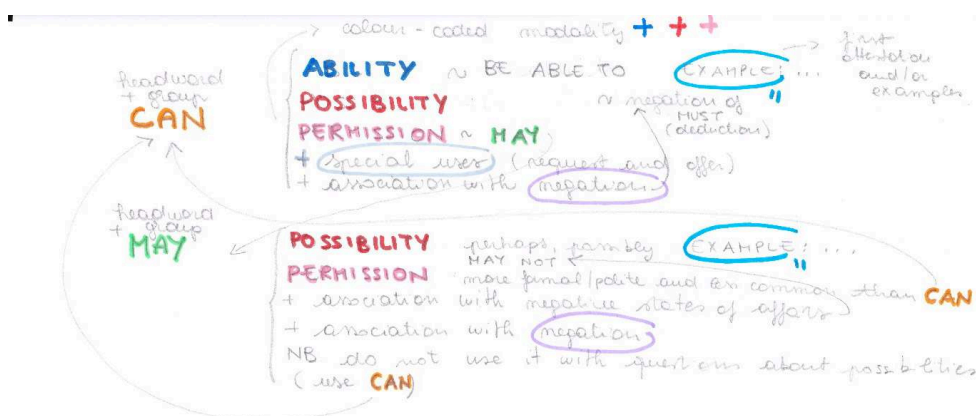 colour-coded modality + + +
headword
+ group
CAN
ABILITY ~ BE ABLE TO EXAMPLE: ...
first
attestation
and/or
examples
POSSIBILITY ~ negation of
MUST
(deduction)
PERMISSION ~ MAY
+ special uses (request and offer)
+ association with negation
headword
+ group
MAY
POSSIBILITY perhaps, possibly EXAMPLE: ...
MAY NOT
PERMISSION more formal/polite and common than CAN
+ association with negative states of affairs
+ association with negation
NB do not use it with questions about possibilities
(use CAN)